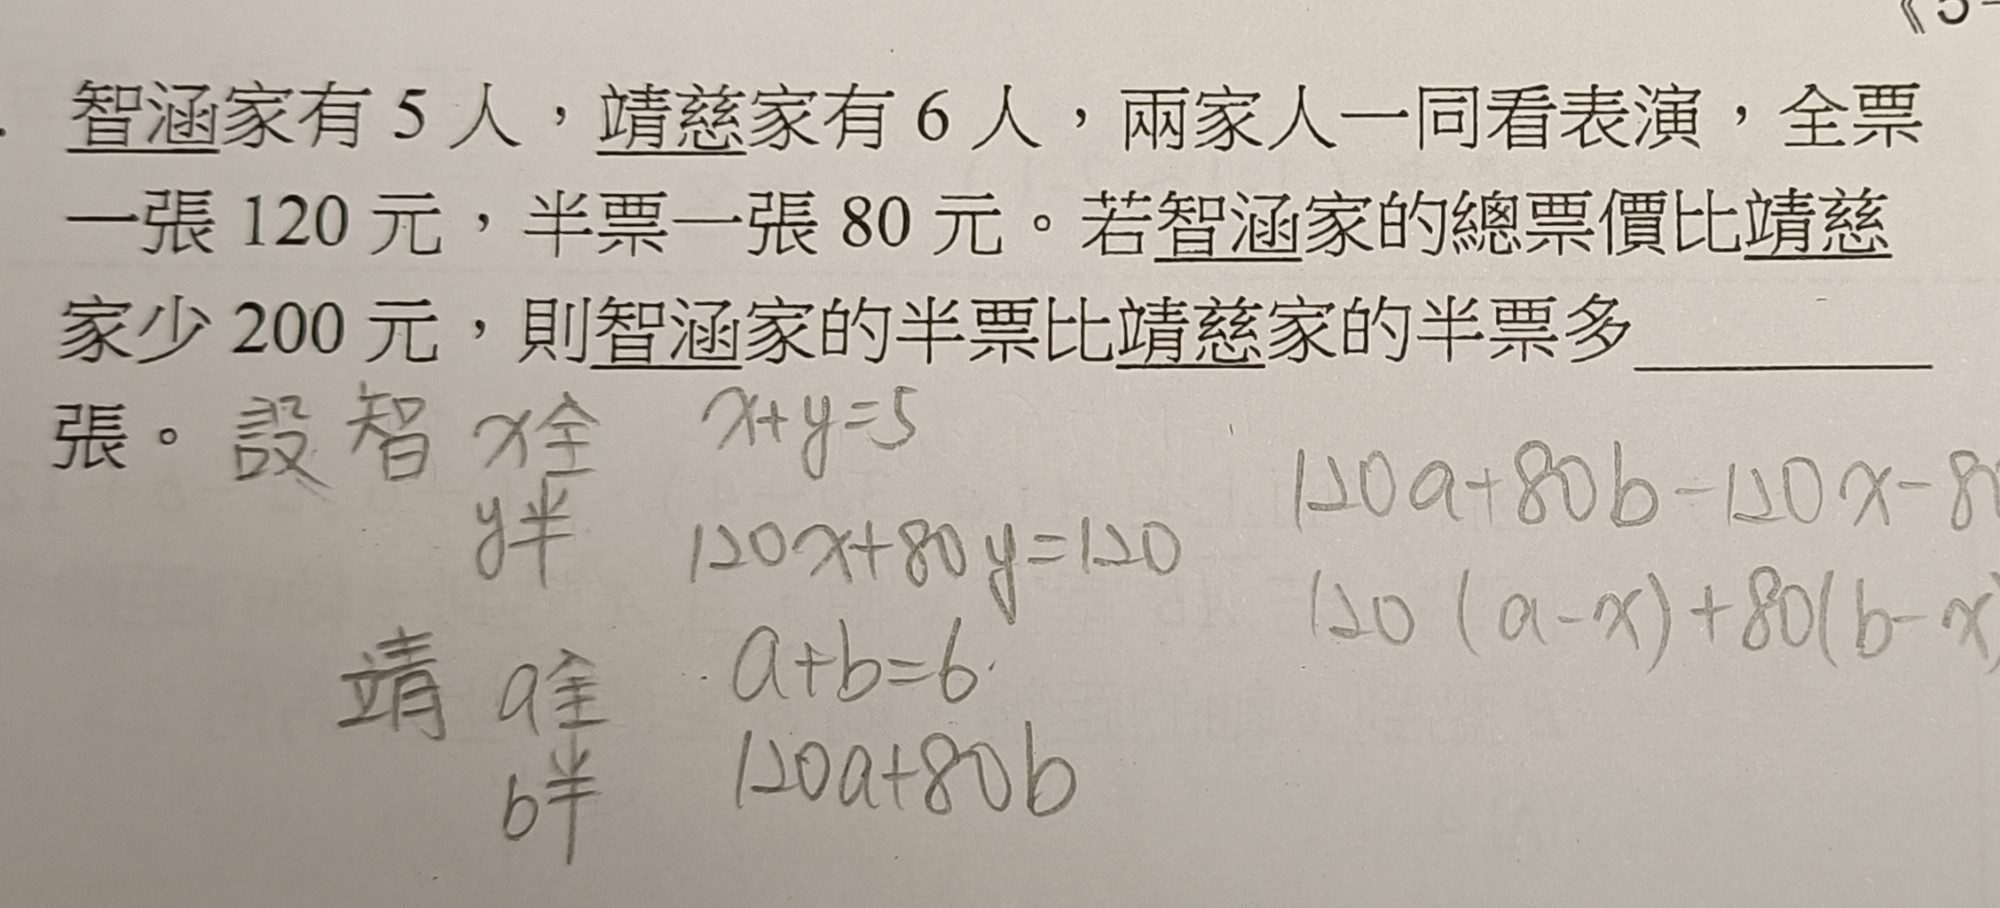 《5-
. 智涵家有 5 人，靖慈家有 6 人，兩家人一同看表演，全票
一張 120 元，半票一張 80 元。若智涵家的總票價比靖慈
家少 200 元，則智涵家的半票比靖慈家的半票多________
張。設 智 x全 x+y=5
y半 120x+80y=120
120a+80b-120x-80
120(a-x)+80(b-x)
靖 a全 a+b=6
b半 120a+80b